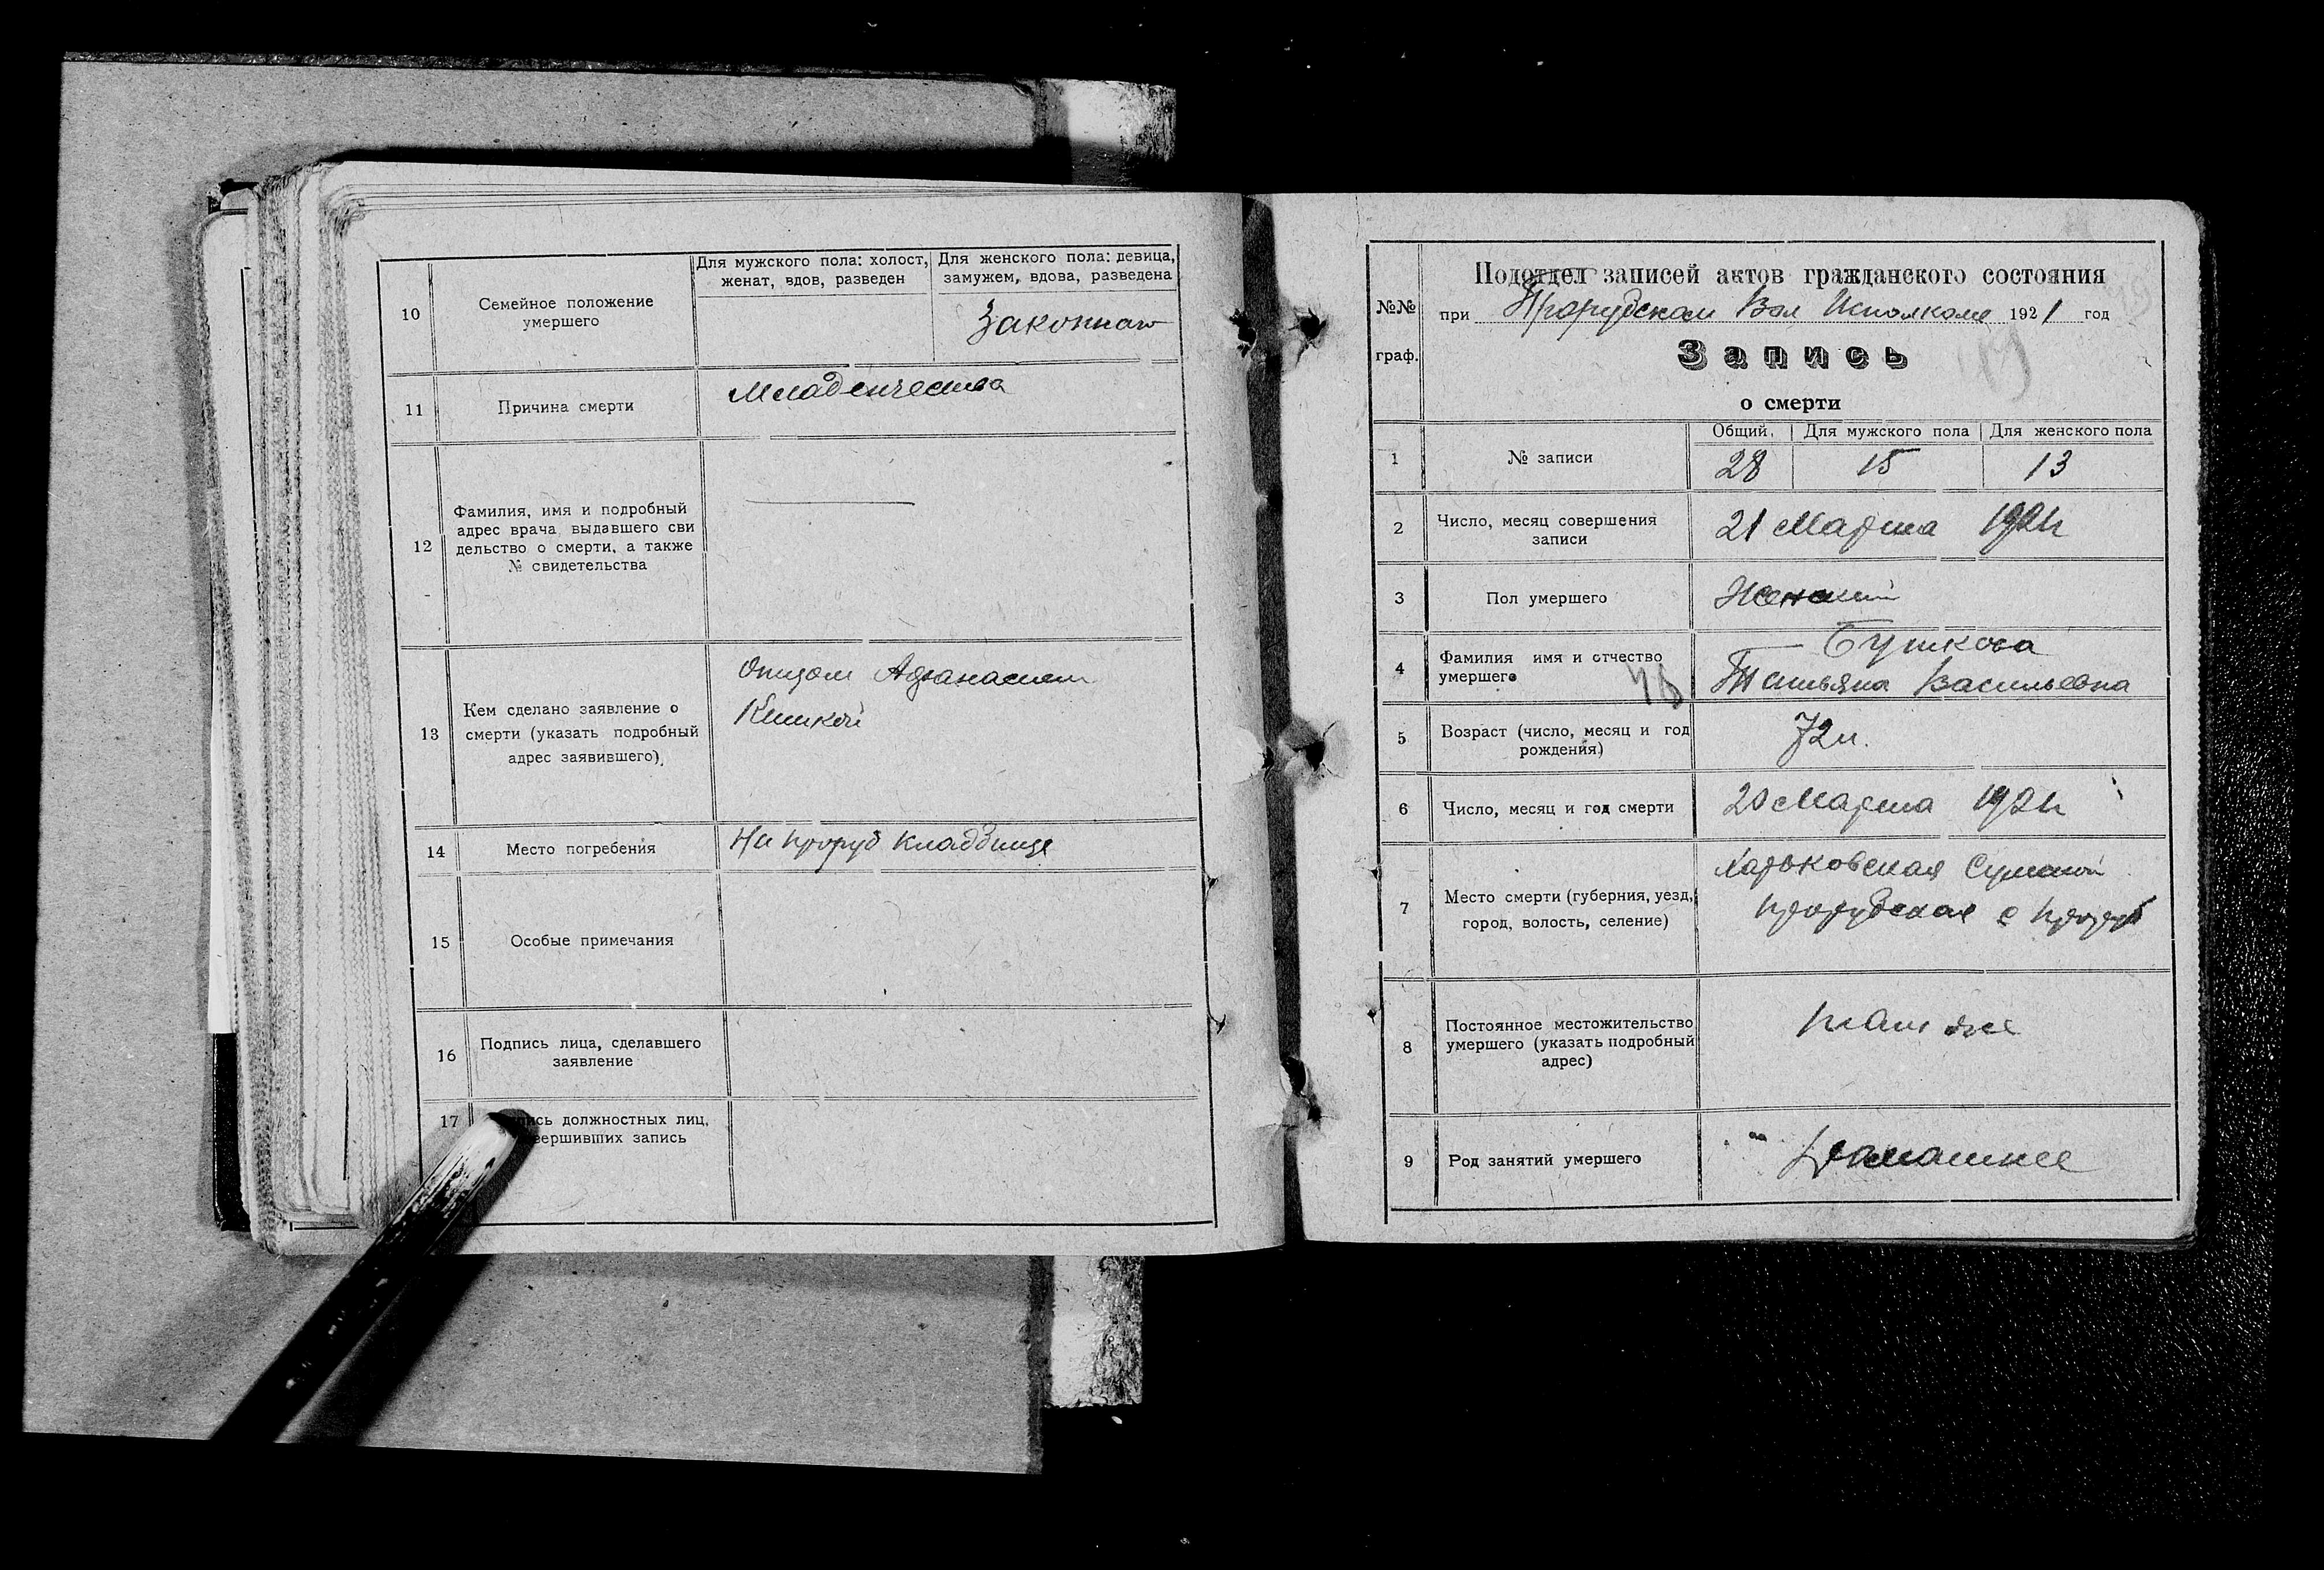 10
Семейное положение
умершего
Для мужского пола: холост,
женат, вдов, разведен
Для женского пола: девица,
замужем, вдова, разведена
Законнаю
11
Причина смерти
Младенчества
12
Фамилия, имя и подробный
адрес врача, выдавшего сви
дельство о смерти, а также
№ свидетельства
13
Кем сделано заявление о
смерти (указать подробный
адрес заявившего)
Отцом Афанасием
14
Место погребения
На Проруб Кладбище
15
Особые примечания
16
Подпись лица, сделавшего
заявление
17
должностных лиц,
запись
№№
граф.
Подотдел записей актов гражданского состояния
при Прорубском Вол Исполкоме 1921 год
Запись
о смерти
1
№ записи
Общий.
Для мужского пола
Для женского пола
28
15
13
2
Число, месяц совершения
записи
21 Марта 1921
3
Пол умершего
Женский
4
Фамилия имя и отчество
умершего
Буткова
Татьяна Васильевна
5
Возраст (число, месяц и год
рождения)
72
6
Число, месяц и год смерти
20 Марта 1921
7
Место смерти (губерния, уезд,
город, волость, селение)
Харьковская Сумской
Прорубская с Проруб
8
Постоянное местожительство
умершего (указать подробный
адрес)
там же
9
Род занятий умершего
Домашнее